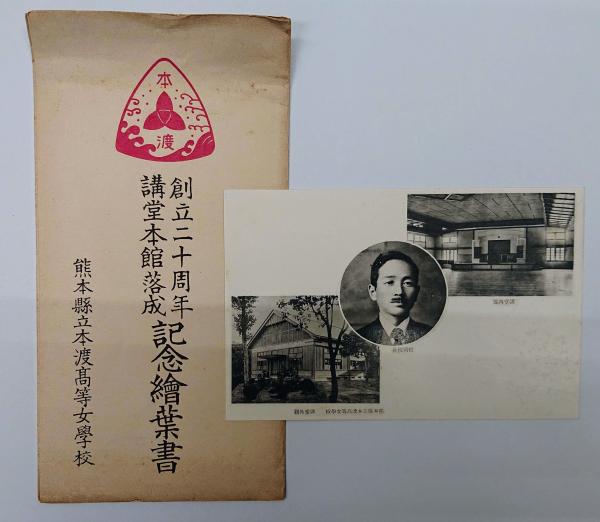 本
渡
創立二十周年
講堂本館落成
記念繪葉書
熊本縣立本渡高等女學校
講堂內部
講堂外觀
熊本縣立本渡高等女學校